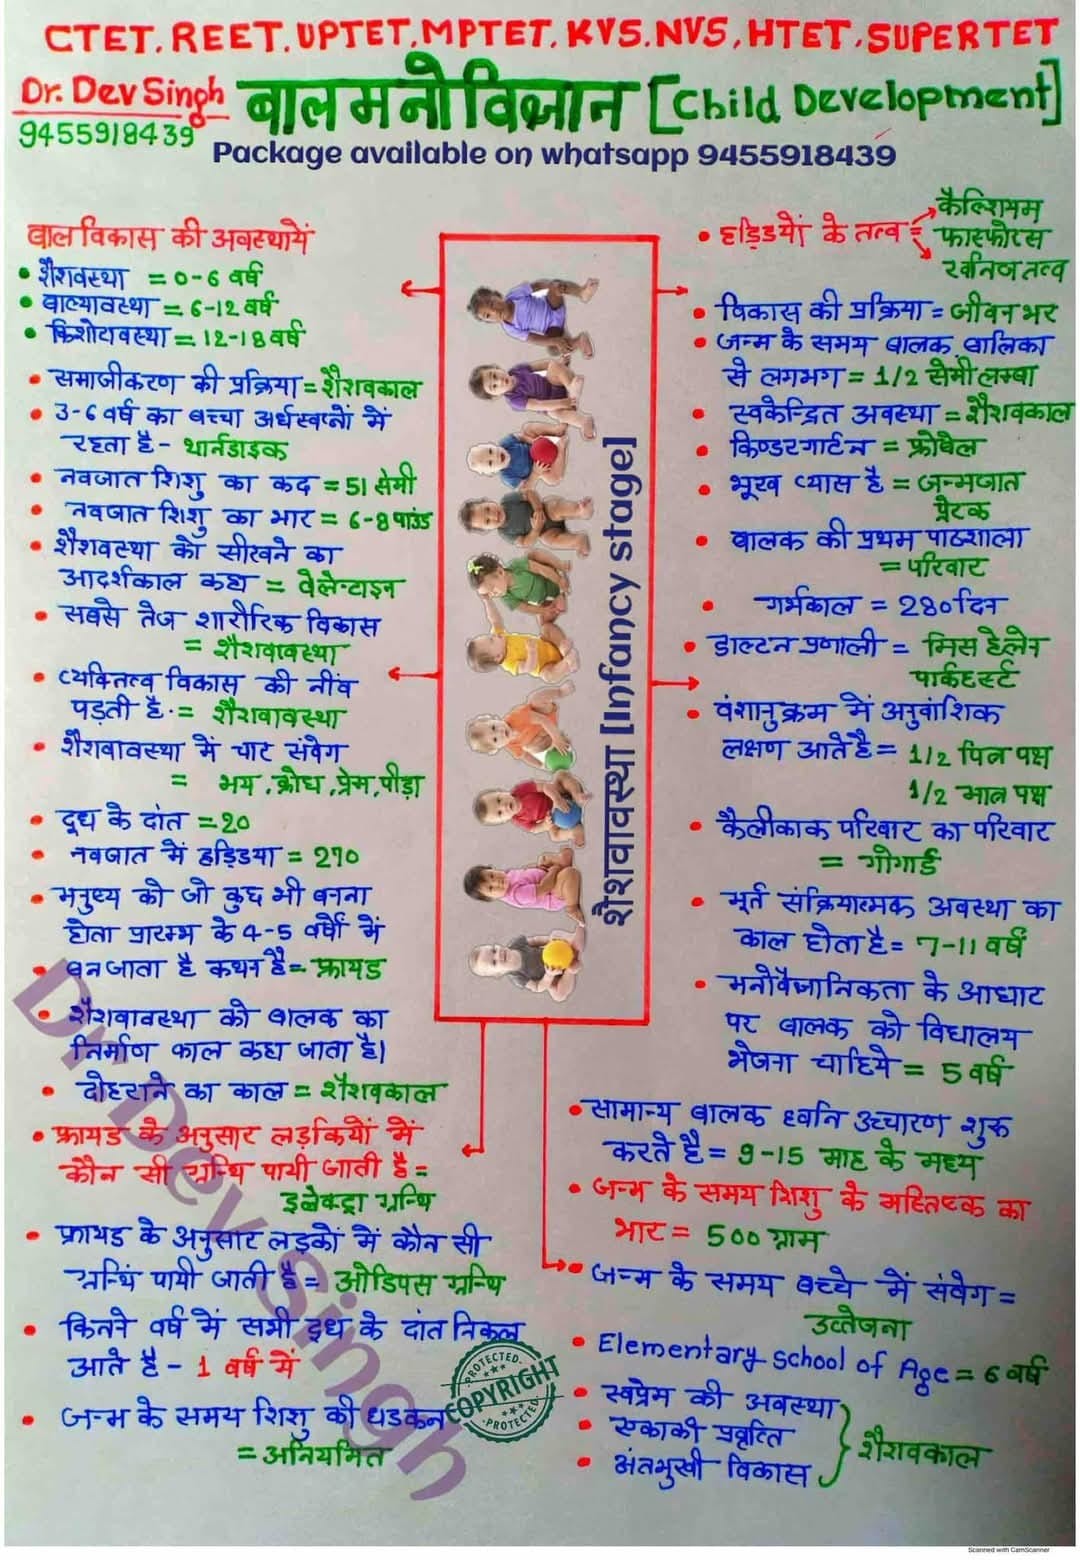 CTET. REET. UPTET. MPTET. KVS. NVS, HTET. SUPERTET
Dr. Dev Singh
9455918439
बाल मनोविज्ञान [Child Development]
Package available on whatsapp 9455918439
बाल विकास की अवस्थायें
• शैशवस्था = 0-6 वर्ष
• बाल्यावस्था = 6-12 वर्ष
• किशोरावस्था = 12-18 वर्ष
• समाजीकरण की प्रक्रिया = शैशवकाल
• 3-6 वर्ष का बच्चा अर्धस्वप्नों में
रहता है - थार्नडाइक
• नवजात शिशु का कद = 51 सेमी
• नवजात शिशु का भार = 6-8 पाउंड
• शैशवस्था को सीखने का
आदर्शकाल कहा = वेलेन्टाइन
• सबसे तेज शारीरिक विकास
= शैशवावस्था
• व्यक्तित्व विकास की नींव
पड़ती है. = शैशवावस्था
• शैशवावस्था में चार संवेग
= भय, क्रोध, प्रेम, पीड़ा
• दूध के दांत = 20
• नवजात में हड्डिया = 270
• मनुष्य को जो कुछ भी बनना
होता प्रारम्भ के 4-5 वर्षों में
• बन जाता है कथन है = फ्रायड
• शैशवावस्था को बालक का
निर्माण काल कहा जाता है।
• दोहराने का काल = शैशवकाल
• फ्रायड के अनुसार लड़कियों में
कौन सी ग्रन्थि पायी जाती है =
इलेक्ट्रा ग्रन्थि
• फ्रायड के अनुसार लड़कों में कौन सी
ग्रन्थि पायी जाती है = ओडिपस ग्रन्थि
• कितने वर्ष में सभी दूध के दांत निकल
आते है - 1 वर्ष में
• जन्म के समय शिशु की धडकन
= अनियमित
शैशवावस्था [Infancy stage]
• हड्डियों के तत्व = कैल्शियम
फास्फोरस
खनिज तत्व
• विकास की प्रक्रिया = जीवन भर
• जन्म के समय बालक बालिका
से लगभग = 1/2 सेमी लम्बा
• स्वकेन्द्रित अवस्था = शैशवकाल
• किण्डरगार्टन = फ्रोबेल
• भूख प्यास है = जन्मजात
प्रेरक
• बालक की प्रथम पाठशाला
= परिवार
• गर्भकाल = 280 दिन
• डाल्टन प्रणाली = मिस हेलेन
पार्कहर्स्ट
• वंशानुक्रम में अनुवांशिक
लक्षण आते है = 1/2 पितृ पक्ष
1/2 मातृ पक्ष
• कैलीकाक परिवार का परिवार
= गोगार्ड
• मूर्त संक्रियात्मक अवस्था का
काल होता है = 7-11 वर्ष
• मनोवैज्ञानिकता के आधार
पर बालक को विद्यालय
भेजना चाहिये = 5 वर्ष
• सामान्य बालक ध्वनि उच्चारण शुरू
करते है = 9-15 माह के मध्य
• जन्म के समय शिशु के मस्तिष्क का
भार = 500 ग्राम
• जन्म के समय बच्चे में संवेग =
उत्तेजना
• Elementary School of Age = 6 वर्ष
• स्वप्रेम की अवस्था
• एकाकी प्रवृत्ति
• अंतर्भुखी विकास
शैशवकाल
Dr Dev Singh
PROTECTED
COPYRIGHT
PROTECTED
Scanned with CamScanner